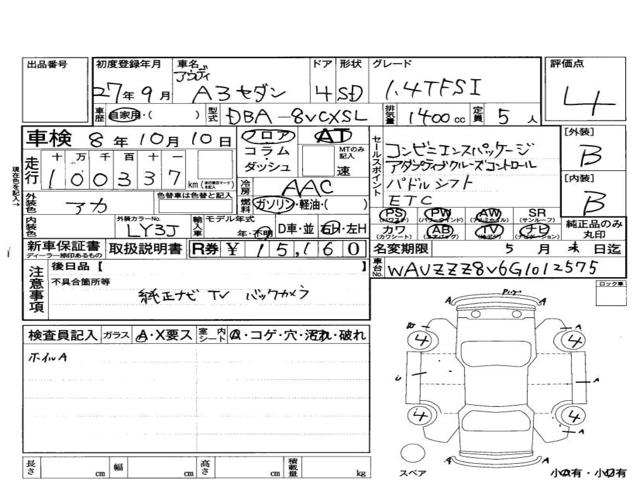 出品番号 初度登録年月 車名 ドア 形状 グレード 評価点
27年9月 アウディ A3セダン 4 SD 1.4TFSI 4
車歴 自家用・( ) 型式 DBA-8VCXSL 排気量 1400cc 定員 5人
車検 8年10月10日 フロア AT セールスポイント コンビニエンスパッケージ [外装]
走行 十 万 千 百 十 一 コラム・ダッシュ MTのみ記入 速 アダプティブクルーズコントロール B
100337 km 冷房 AAC パドルシフト [内装]
外装色 アカ 燃料 ガソリン・軽油・( ) ETC B
内装色 外装カラーNo. LY3J 輸入車 モデル年式 年・不明 D車・並 右H・左H PS PW AW SR 純正品のみ丸印
カワ AB TV ナビ
新車保証書 ディーラー捺印あるもの 取扱説明書 R券 ¥15,160 名変期限 5月末日迄
注意事項 後日品[ ] 車台No. WAUZZZ8V6G1012575
不具合箇所等 ロック車
純正ナビ TV バックカメラ
検査員記入 ガラス A・X要ス 室内シート Q・コゲ・穴・汚れ・破れ
ホイルA
4 4
A
4 4
A
長さ cm 幅 cm 高さ cm 積載量 kg スペア 小A有・小U有
現在色を記入→